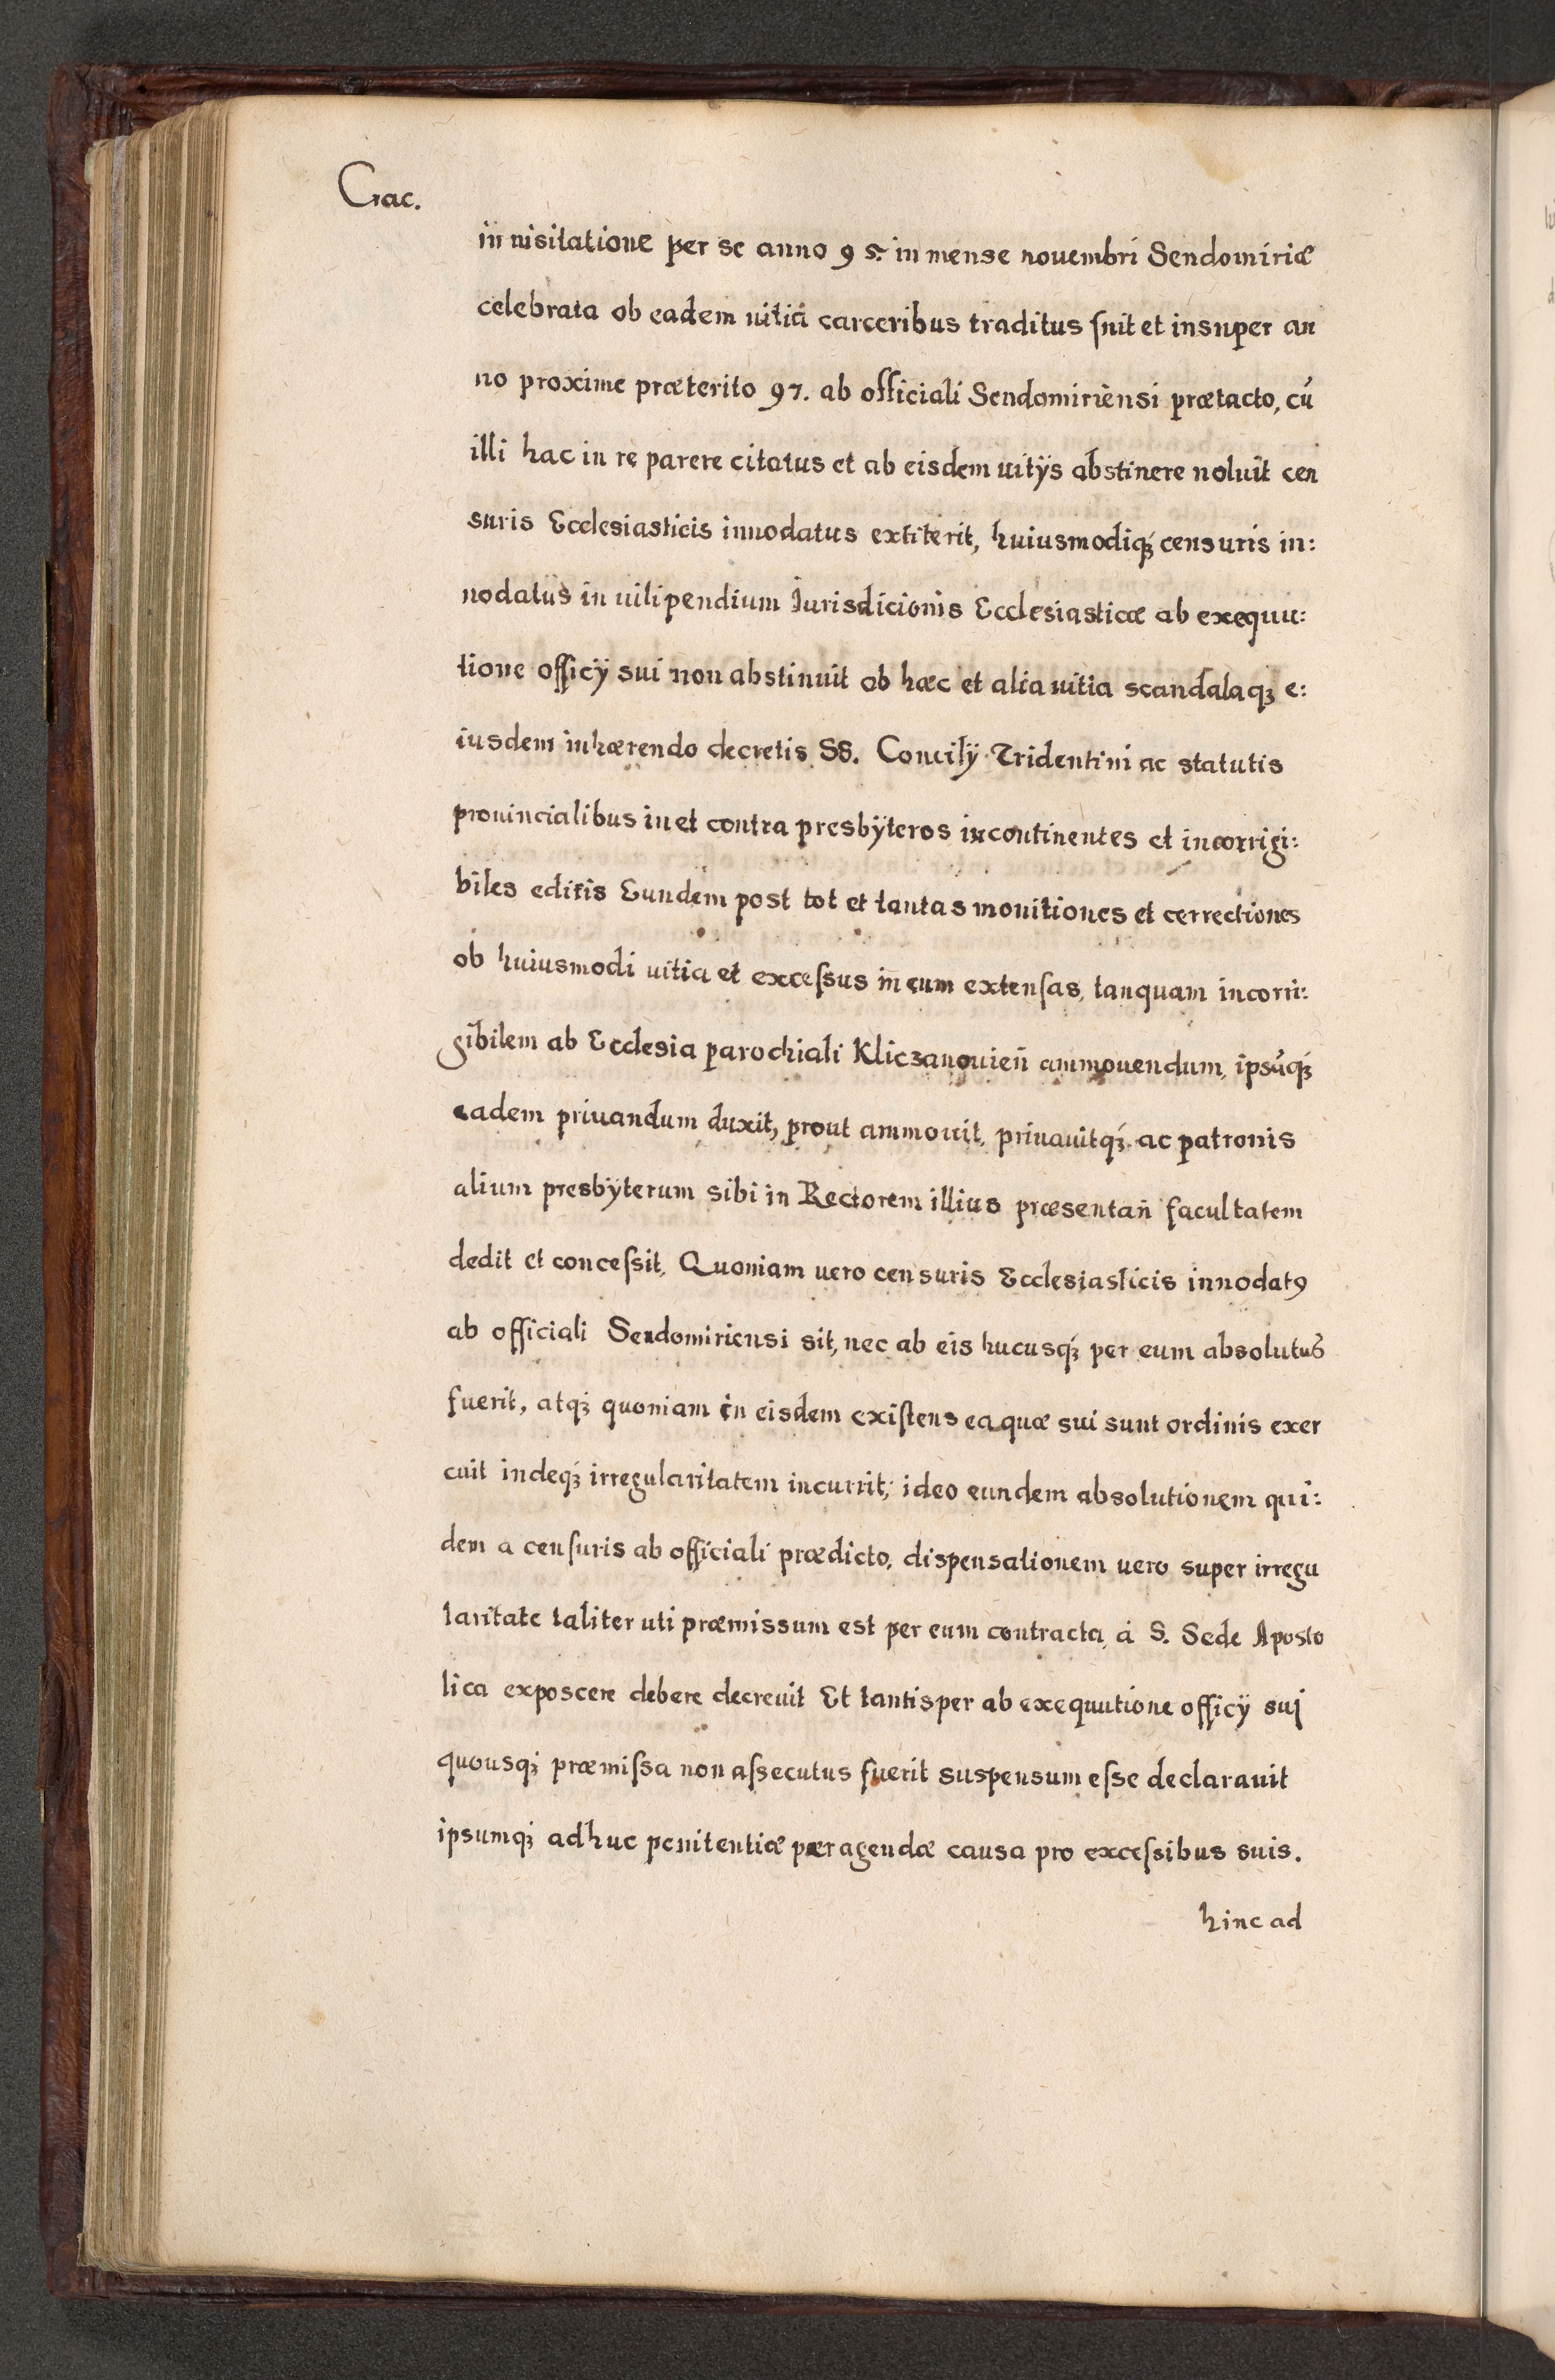 Crac.
in uisitatione per se anno 95. in mense nouembri Sendomiriæ
celebrata ob eadem uitia carceribus traditus fuit et insuper an
no proxime præterito 97. ab officiali Sendomiriensi prætacto, cū
illi hac in re parere citatus et ab eisdem uitÿs abstinere noluit cen
suris Ecclesiasticis innodatus extiterit, huiusmodiqꝫ censuris in:
nodatus in uilipendium Iurisdicionis Ecclesiasticæ ab exequu:
tione officÿ sui non abstinuit ob hæc et alia uitia scandalaqꝫ e:
iusdem inhærendo decretis SS. Concilÿ Tridentini ac statutis
prouincialibus in et contra presbÿteros incontinentes et incorrigi:
biles editis Eundem post tot et tantas monitiones et cerrectiones
ob huiusmodi uitia et exceſsus in eum extenſas, tanquam incorri:
gibilem ab Ecclesia parochiali Kliczanouien̄ ammouendum, ipsūqꝫ
eadem priuandum duxit, prout ammouit, priuauitqꝫ ac patronis
alium presbÿterum sibi in Rectorem illius præsentan̄ facultatem
dedit et conceſsit, Quoniam uero censuris Ecclesiasticis innodatꝯ
ab officiali Sendomiriensi sit, nec ab eis hucusqꝫ per eum absolutus
fuerit, atqꝫ quoniam in eisdem exiſtens ea quæ sui sunt ordinis exer
cuit indeqꝫ irregularitatem incurrit, ideo eundem absolutionem qui:
dem a cenſuris ab officiali prædicto, dispensationem uero super irregu
laritate taliter uti præmissum est per eum contracta, à S. Sede Aposto
lica exposcere debere decreuit Et tantisper ab exequutione officÿ suj
quousqꝫ præmiſsa non aſsecutus fuerit suspensum eſse declarauit
ipsumqꝫ adhuc penitentiæ peragendæ causa pro exceſsibus suis.
hinc ad